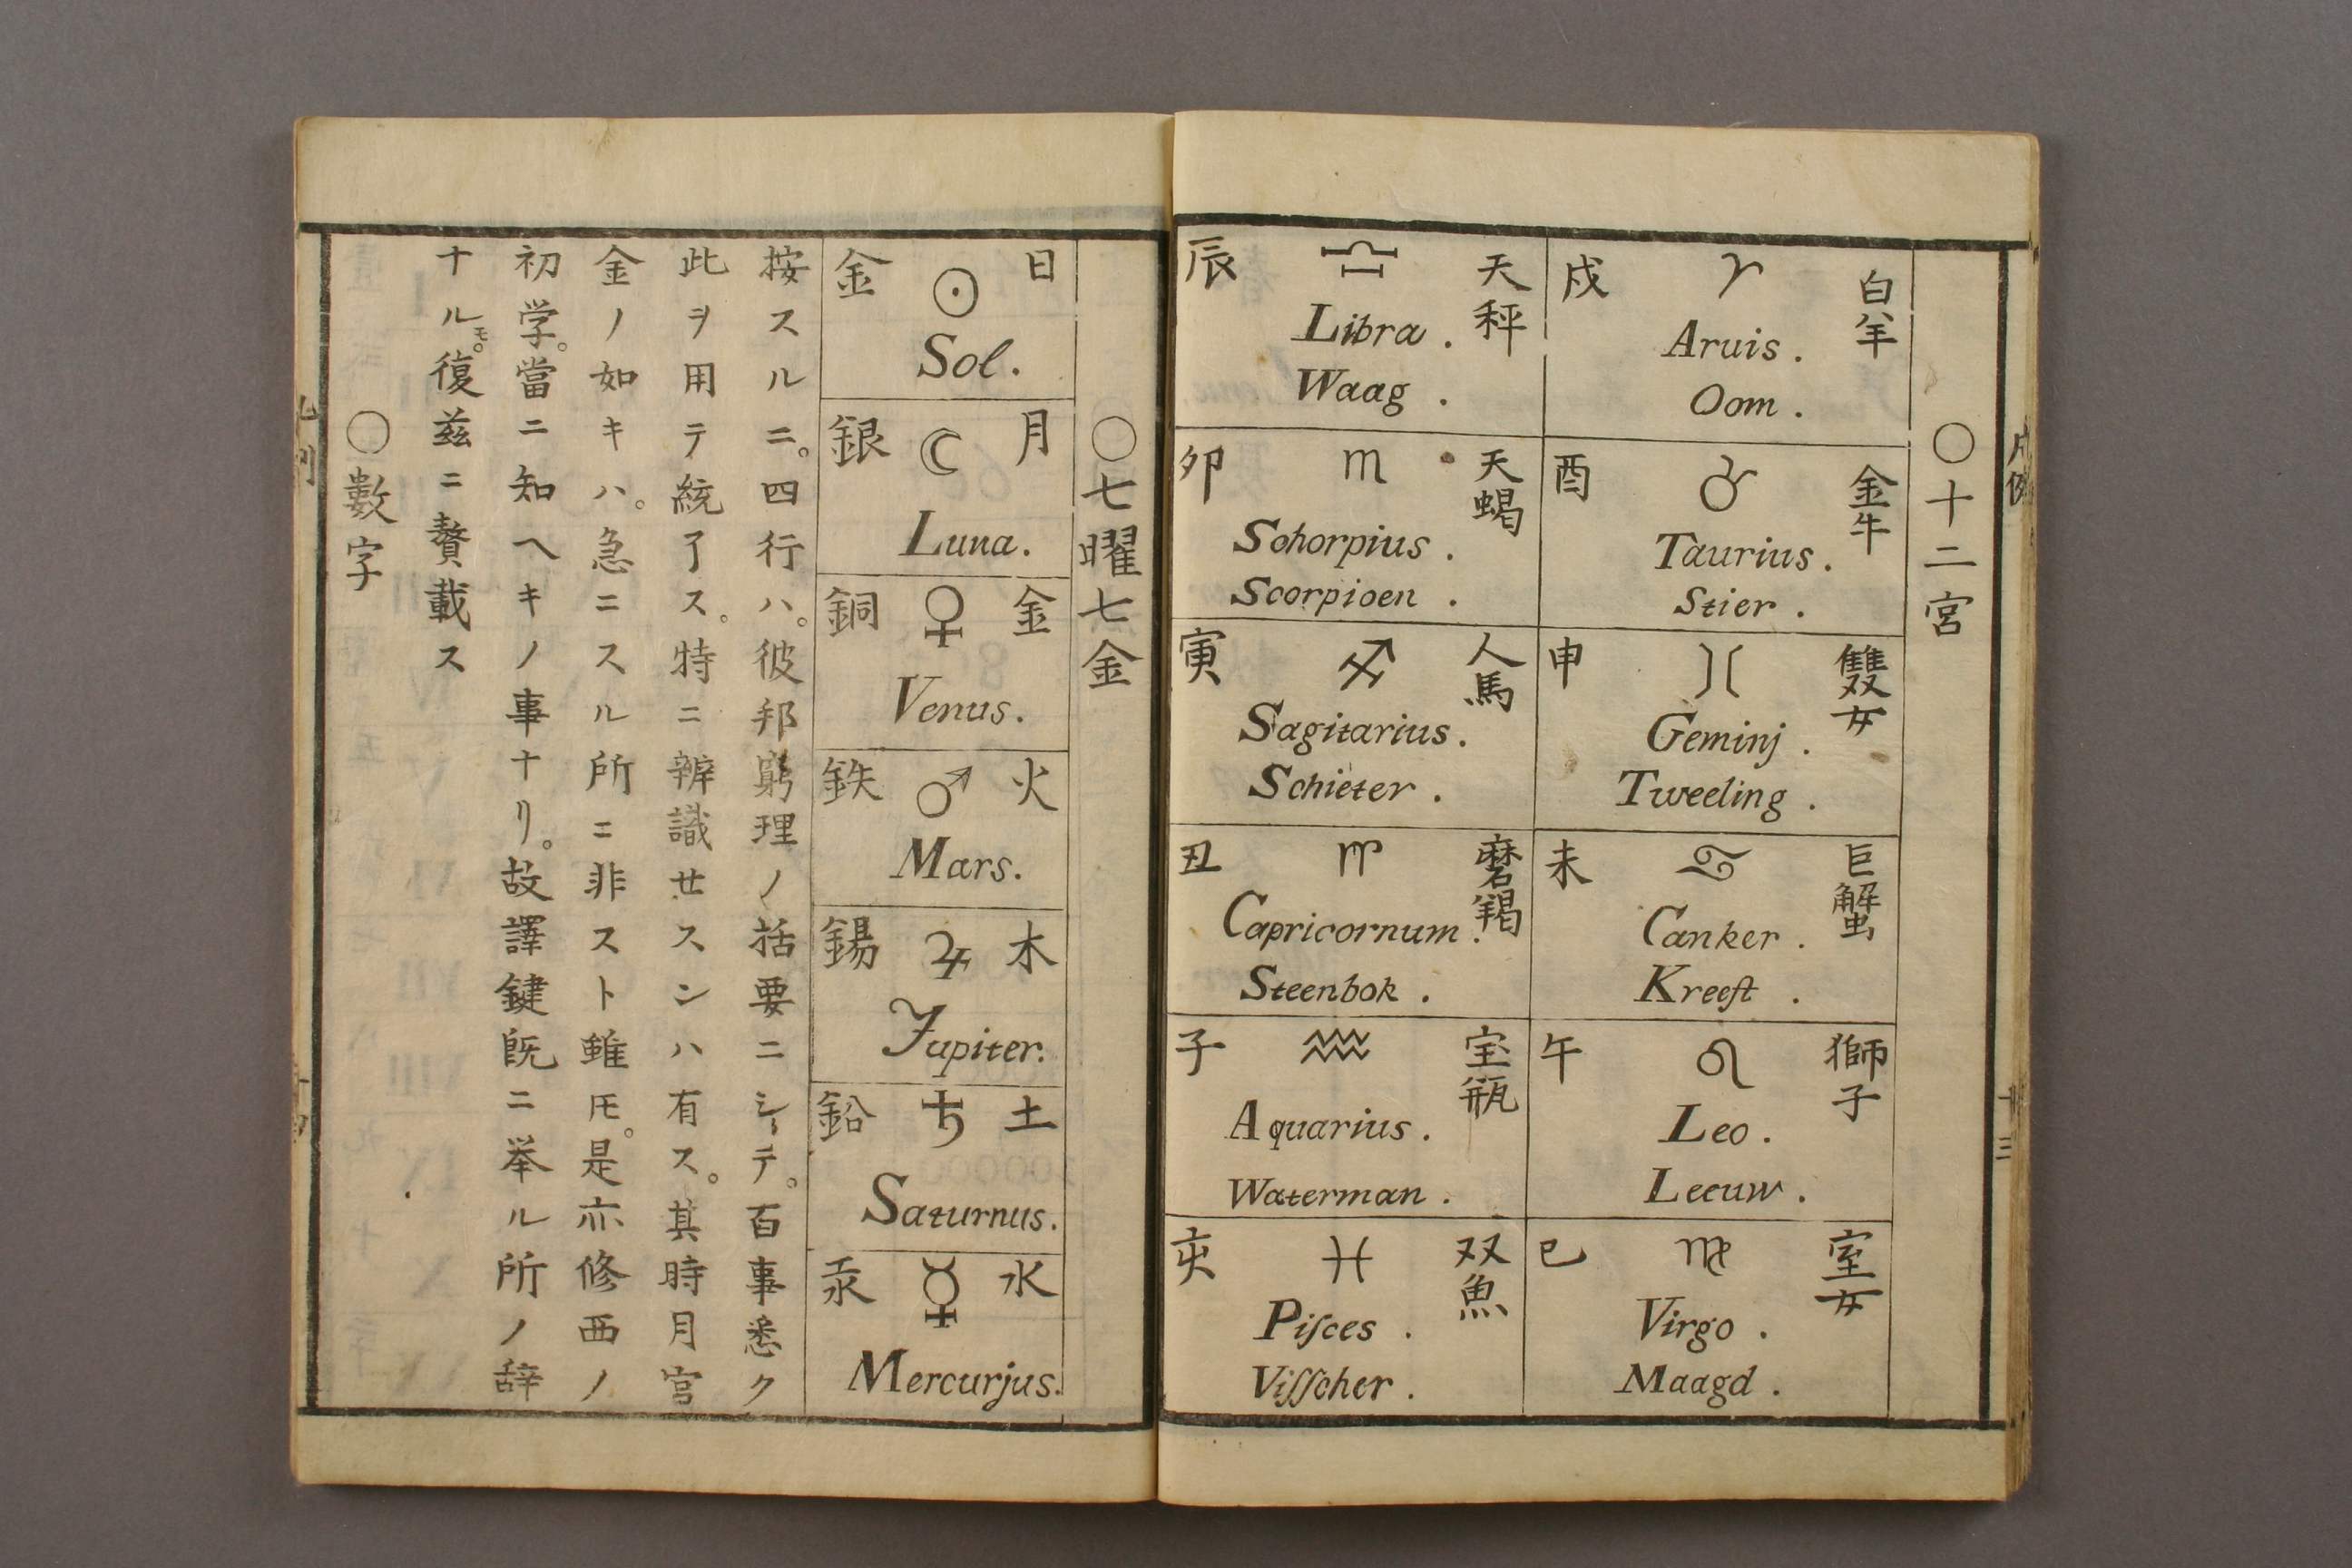 凡例
十三
○十二宮
白羊
♈
戌
Aruis.
Oom.
金牛
♉
酉
Taurius.
Stier.
雙女
♊
申
Geminj.
Tweeling.
巨蟹
♋
未
Canker.
Kreeſt.
獅子
♌
午
Leo.
Leeuw.
室女
♍
巳
Virgo.
Maagd.
天秤
♎
辰
Libra.
Waag.
天蝎
♏
卯
Sohorpius.
Scorpioen.
人馬
♐
寅
Sagitarius.
Schieter.
磨羯
♑
丑
Capricornum.
Steenbok.
宝瓶
♒
子
Aquarius.
Waterman.
双魚
♓
亥
Piſces.
Viſſcher.
○七曜七金
日
☉
金
Sol.
月
☾
銀
Luna.
金
♀
銅
Venus.
火
♂
鉄
Mars.
木
♃
錫
Jupiter.
土
♄
鉛
Saturnus.
水
☿
汞
Mercurjus.
按スルニ。四行ハ。彼邦窮理ノ括要ニシテ。百事悉ク
此ヲ用テ統了ス。特ニ辨識せスンハ有ス。其時月宮
金ノ如キハ。急ニスル所ニ非スト雖モ。是亦修西ノ
初学。當ニ知ヘキノ事ナリ。故譯鍵既ニ挙ル所ノ辞
ナルモ。復茲ニ贅載ス
○數字